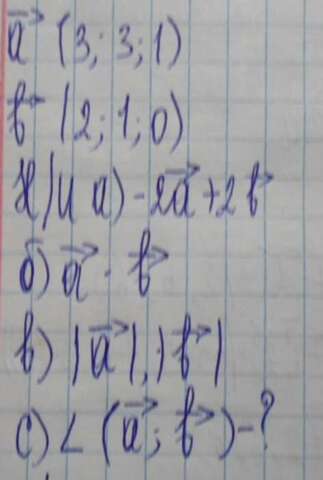 a⃗ (3; 3; 1)
b⃗ (2; 1; 0)
Н/И а) -2a⃗ + 2b⃗
б) a⃗ · b⃗
в) |a⃗|, |b⃗|
с) ∠ (a⃗; b⃗) -?